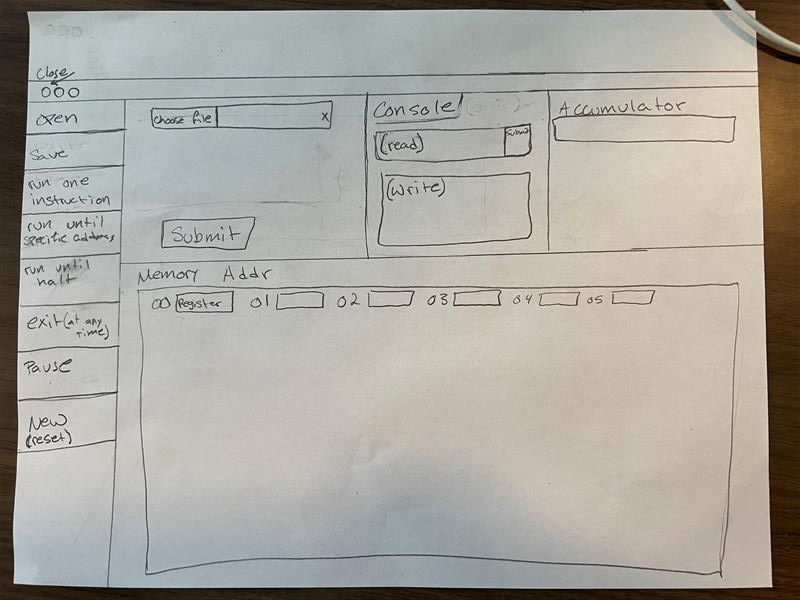 Close
open
Save
run one
instruction
run until
specific address
run until
halt
exit (at any
time)
Pause
New
(reset)
choose file
x
Submit
Console
(write)
(read)
Submit
(write)
Accumulator
Memory Addr
00 Register 01 02 03 04 05